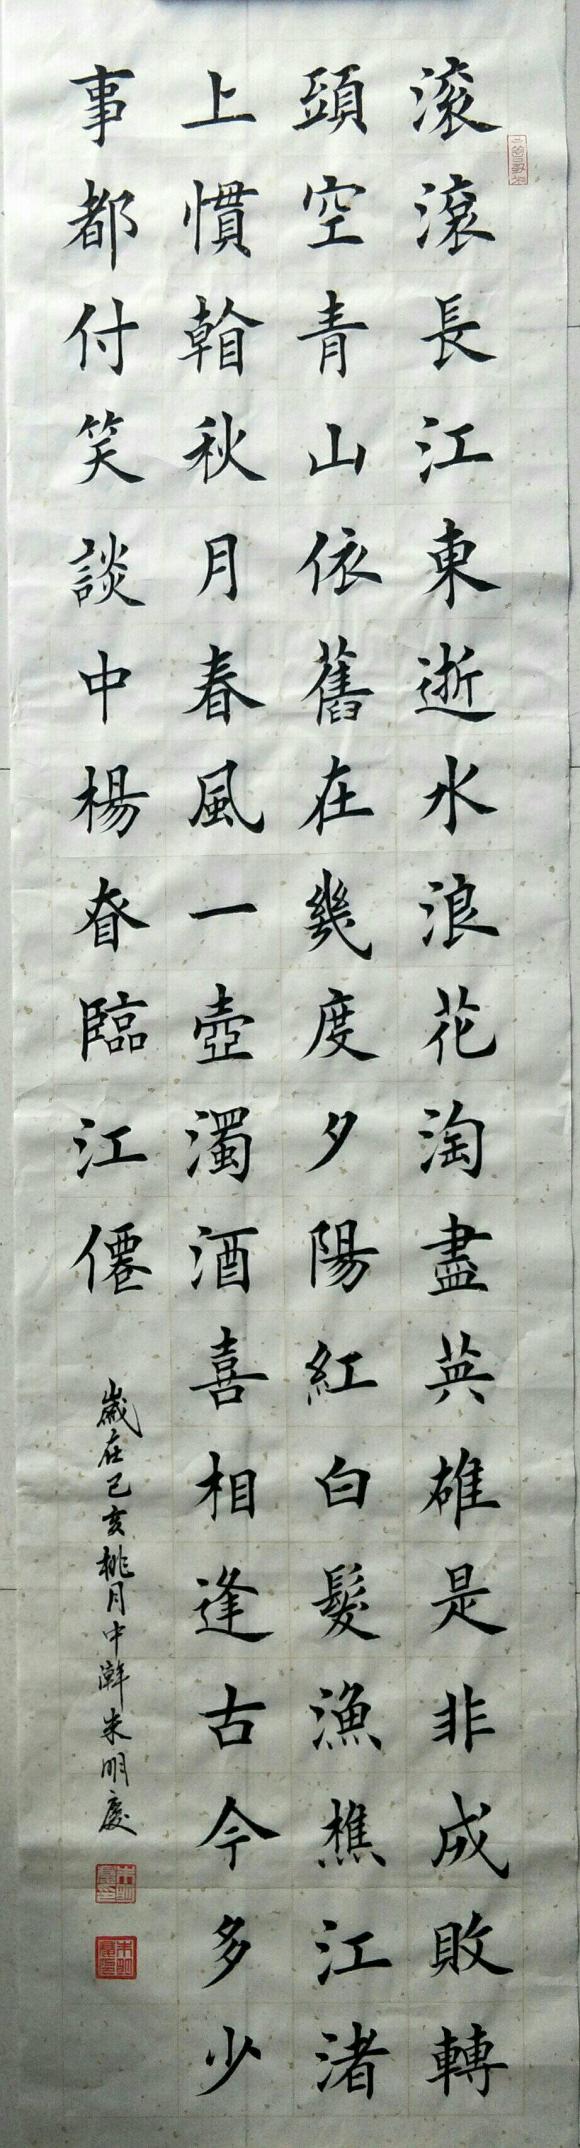 滚滾長江東逝水浪花淘盡英雄是非成敗轉
頭空青山依舊在幾度夕陽紅白髮漁樵江渚
上慣䀨秋月春風一壺濁酒喜相逢古今多少
事都付笑談中楊眘臨江僊
歲在己亥桃月中澣朱明慶